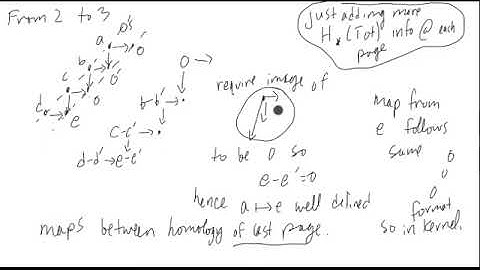 From 2 to 3
just adding more
H*(Tot) info @ each
page
0's
a → 0'
b → 0'
c → 0
d → 0
e
0 →
b-b' →
c-c' →
d-d' → e-e'
require image of
to be 0 so
e-e'=0
hence a ↦ e well defined
maps between homology of last page.
map from
e follows
same
0
0
0
format
so in kernel.